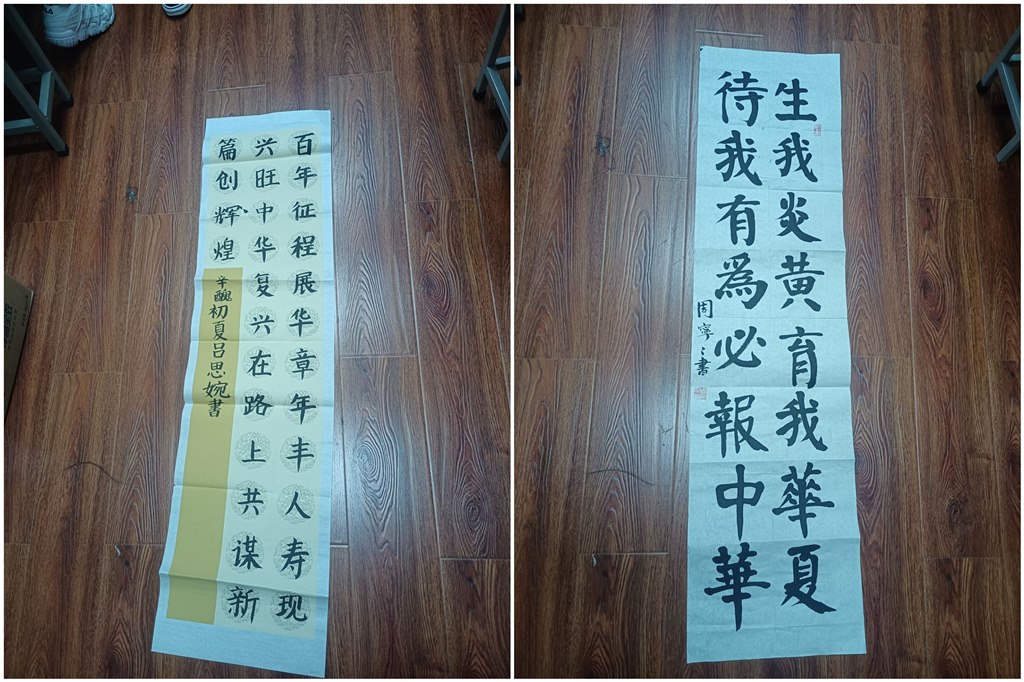 百年征程展华章年丰人寿现
兴旺中华复兴在路上共谋新
篇创辉煌
辛醜初夏吕思婉書
生我炎黄育我華夏
待我有為必報中華
周寧寧書